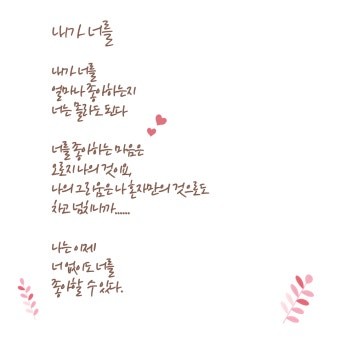 내가 너를
내가 너를
얼마나 좋아하는지
너는 몰라도 된다
너를 좋아하는 마음은
오로지 나의 것이요,
나의 그리움은 나 혼자만의 것으로도
차고 넘치니까......
나는 이제
너 없이도 너를
좋아할 수 있다.